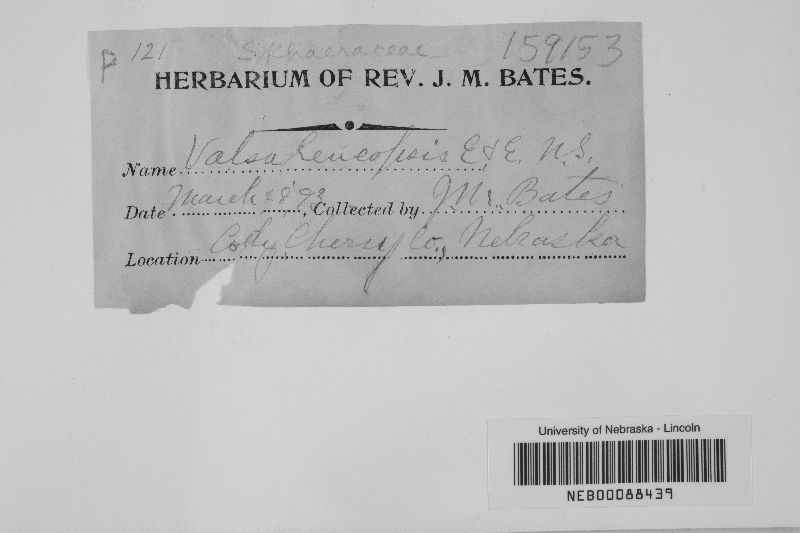 P 121 Sphaeraceae 159153
HERBARIUM OF REV. J. M. BATES.
Name Valsa leucopsis E. & E. N. S.
Date March 28 '93, Collected by J. M. Bates
Location Cody, Cherry Co., Nebraska
University of Nebraska - Lincoln
NEB00088439